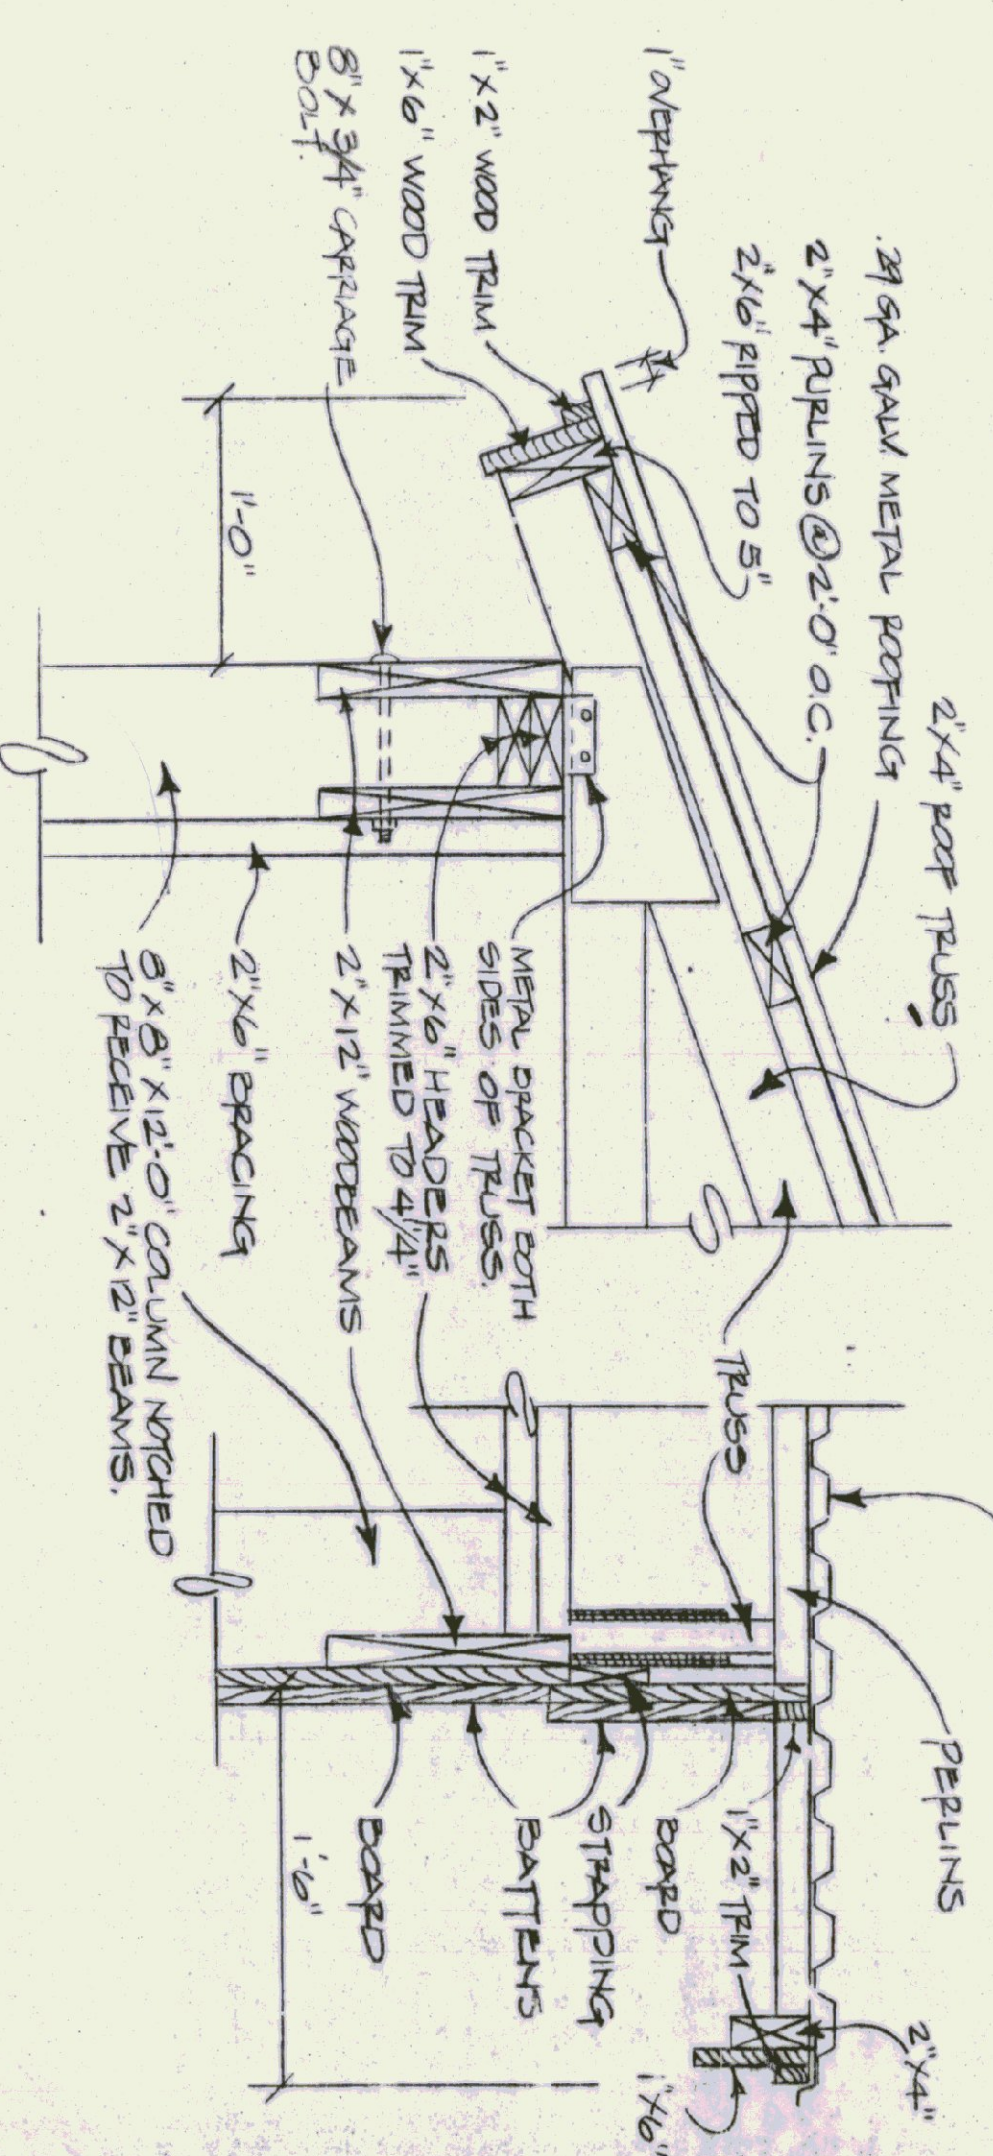 2"X4" ROOF TRUSS
.29 GA. GALV. METAL ROOFING
2"X4" PURLINS @ 2'-0" O.C.
2"X6" RIPPED TO 5"
1" OVERHANG
1"X2" WOOD TRIM
1"X6" WOOD TRIM
8"X3/4" CARRIAGE
BOLT.
1'-0"
METAL BRACKET BOTH
SIDES OF TRUSS.
2"X6" HEADERS
TRIMMED TO 4 1/4"
2"X12" WOODBEAMS
2"X6" BRACING
8"X8"X12'-0" COLUMN NOTCHED
TO RECEIVE 2"X12" BEAMS.
TRUSS
PERLINS
2"X4"
1"X2" TRIM
1"X6"
BOARD
STRAPPING
BATTENS
BOARD
1'-6"